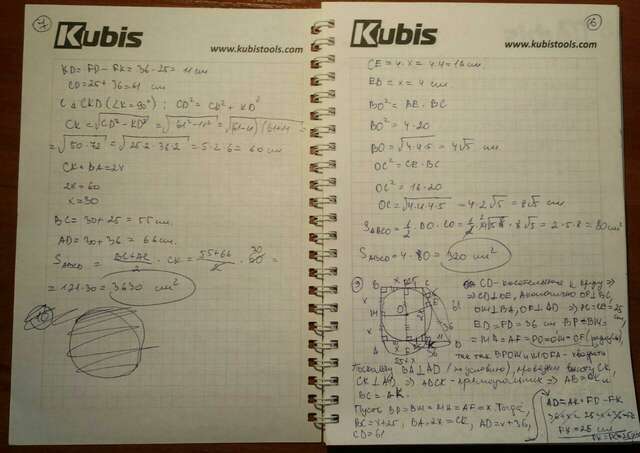 7
Kubis
www.kubistools.com
KD = FD - FK = 36 - 25 = 11 см
CD = 25 + 36 = 61 см
С Δ CKD (∠K = 90°) ; CD² = CK² + KD²
CK = √CD² - KD² = √61² - 11² = √(61-11)(61+11) =
= √50·72 = √25·2·36·2 = 5·2·6 = 60 см
CK = BA = 2x
2x = 60
x = 30
BC = 30 + 25 = 55 см.
AD = 30 + 36 = 66 см.
S ABCD = BC + AD / 2 · CK = 55 + 66 / 2 · 60 30 =
= 121·30 = 3630 см²
6
Kubis
www.kubistools.com
CE = 4·x = 4·4 = 16 см.
EB = x = 4 см.
BO² = BE · BC
BO² = 4·20
BO = √4·4·5 = 4√5 см.
OC² = CE · BC
OC² = 16·20
OC = √4·4·4·5 = 4·2√5 = 8√5 см
S ABCD = 4 · 80 = 320 см²
CD - касательная к кругу ⇒
⇒ CD ⊥ OE, аналогично OP ⊥ BC,
OM ⊥ BA, OF ⊥ AD ⇒ PC = CE = 25 см
ED = FD = 36 см BP = BM =
= MA = AF = PO = OM = OF (радиусы),
так как BPOM и MOFA - квадраты
Поскольку BA ⊥ AD (по условию), проведём высоту CK,
CK ⊥ AD ⇒ ABCK - прямоугольник ⇒ AB = CK и
BC = AK.
Пусть BP = BM = MA = AF = x. Тогда,
BC = x + 25, BA = 2x = CK, AD = x + 36,
CD = 61
AD = AK + FD - FK
36 + x = 25 + x + 36 - FK
FK = 25 см